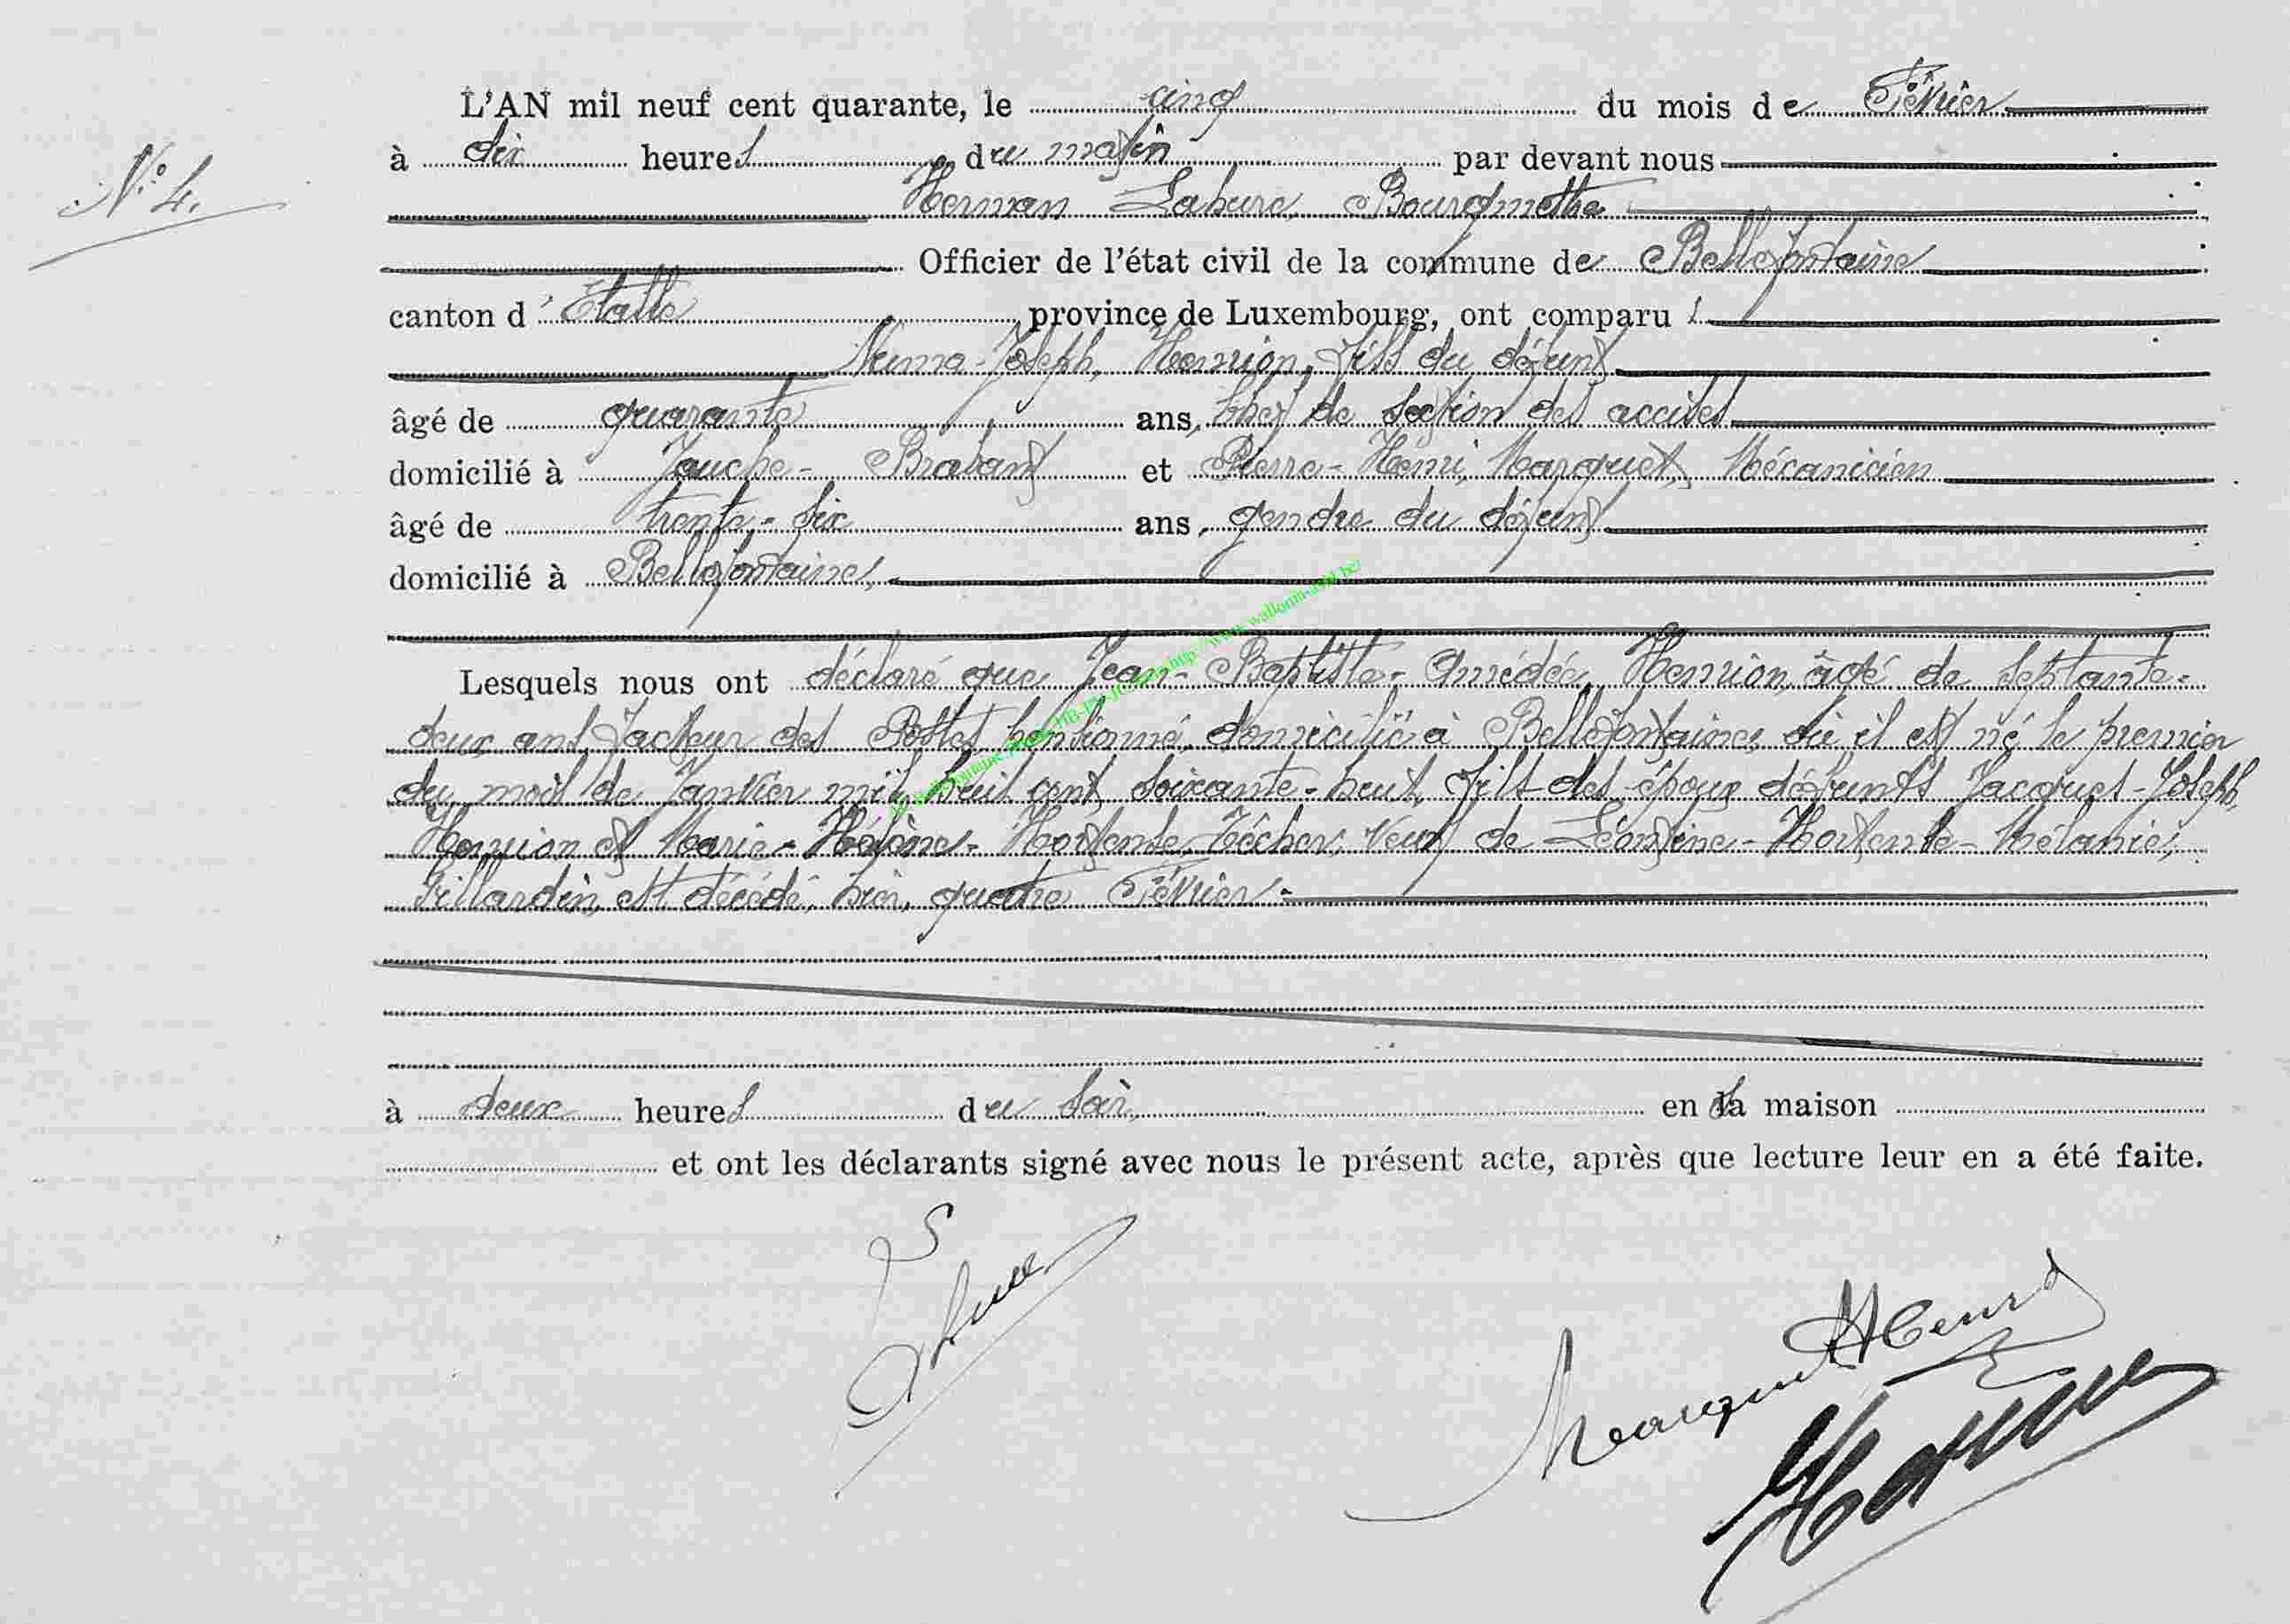 L'AN mil neuf cent quarante, le cinq du mois de Février
N° 4.
à dix heures du matin par devant nous
Herman Lahure, Bourgmestre
Officier de l'état civil de la commune de Bellefontaine
canton d'Etalle province de Luxembourg, ont comparu :
Numa-Joseph, Henrion, fils du défunt
âgé de quarante ans, chef de section des accises
domicilié à Jauche - Brabant et Pierre-Henri, Marquet, Mécanicien
âgé de trente-six ans, gendre du défunt
domicilié à Bellefontaine,
Lesquels nous ont déclaré que Jean-Baptiste-Amédée, Henrion, âgé de septante-
deux ans, facteur des Postes pensionné, domicilié à Bellefontaine, où il est né le premier
du mois de Janvier mil huit cent soixante-huit, fils des époux défunts Jacques-Joseph,
Henrion et Marie-Hélène-Hortense, veuf de Léontine-Hortense-Mélanie,
est décédé, hier, quatre Février
à deux heures du soir, en sa maison
et ont les déclarants signé avec nous le présent acte, après que lecture leur en a été faite.
Marquet Henri